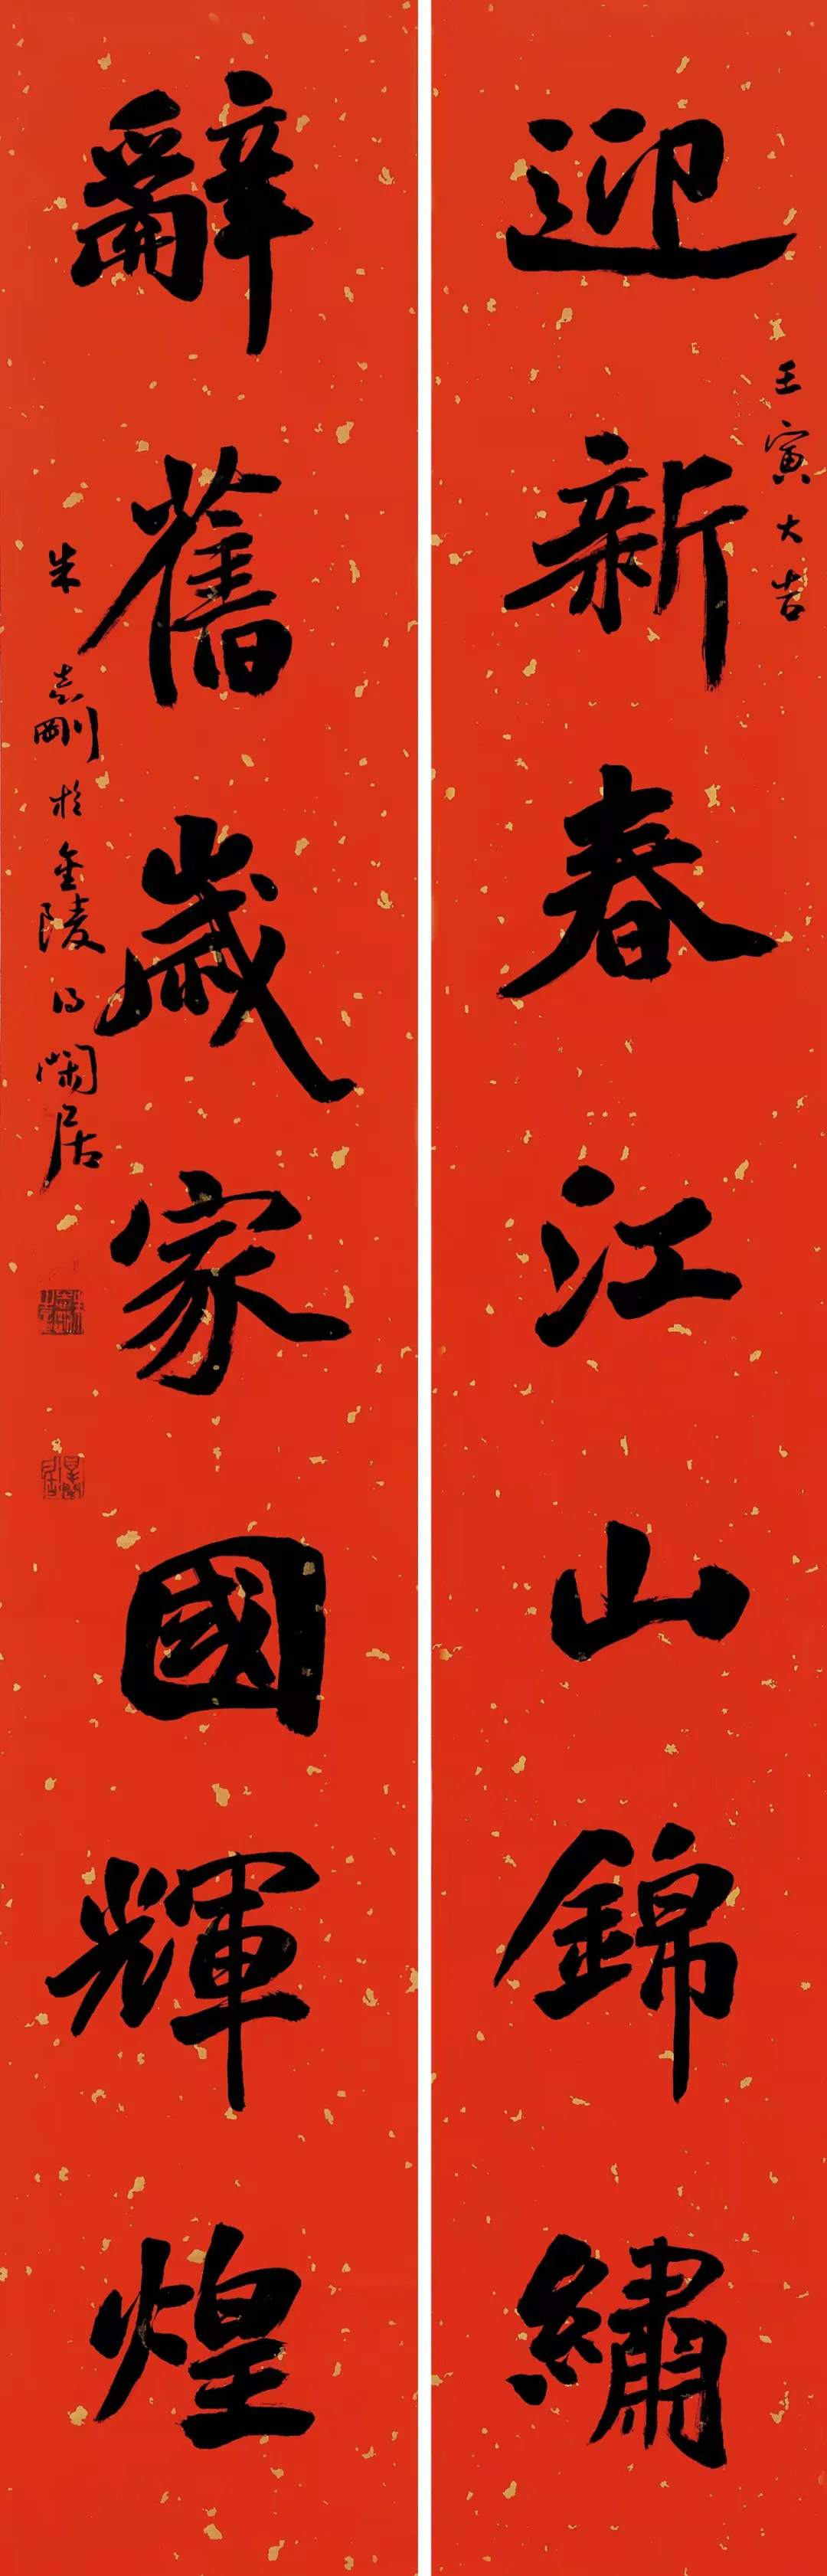 迎新春江山錦繡
壬寅大吉
辭舊歲家國輝煌
朱志剛於金陵得閑居